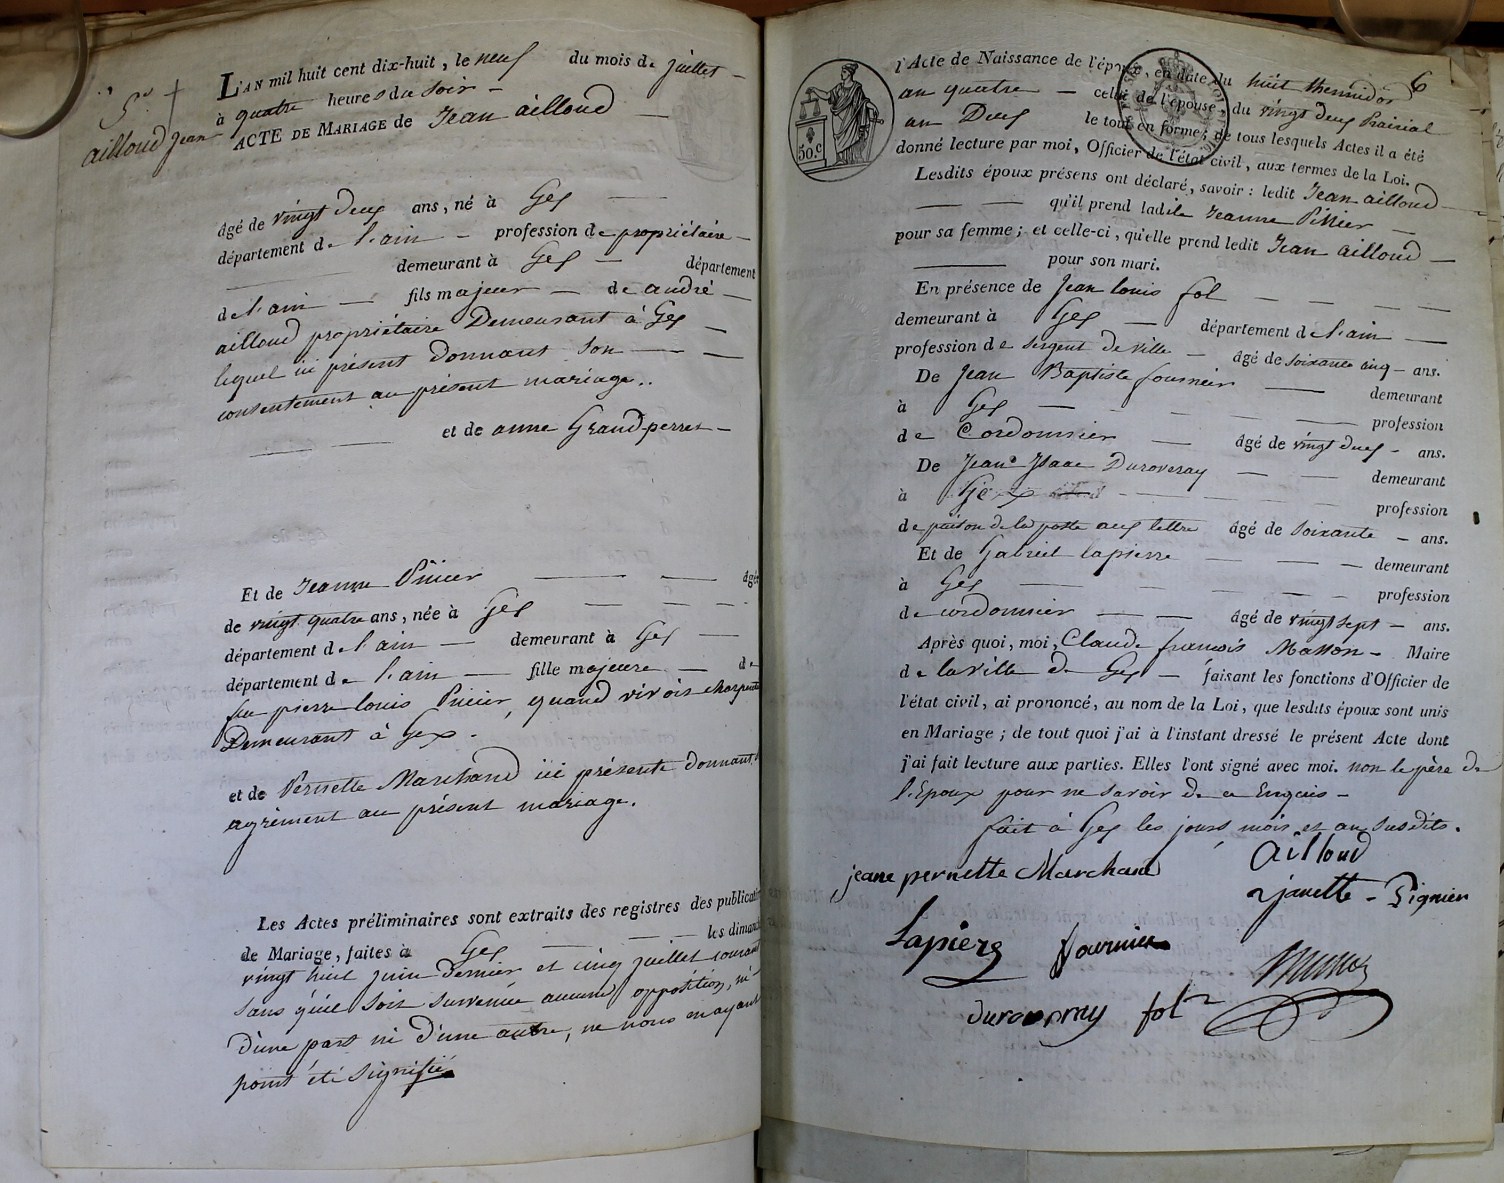 5e
ailloud jean
L'AN mil huit cent dix-huit, le neuf du mois de juillet
à quatre heures du soir
ACTE DE MARIAGE de Jean ailloud
âgé de vingt deux ans, né à Gex
département de l'ain profession de propriétaire
demeurant à Gex département
de l'ain fils majeur de andré
ailloud propriétaire Demeurant à Gex
lequel ici présent donnant son
consentement au présent mariage..
et de anne Grandperret
Et de Jeanne Pinier âgée
de vingt quatre ans, née à Gex
département de l'ain demeurant à Gex
département de l'ain fille majeure de
feu pierre louis Pinier, quand vivoit charpentier
Demeurant à Gex.
et de Pernette Marchand ici présente donnant
agrément au présent mariage.
Les Actes préliminaires sont extraits des registres des publications
de Mariage, faites à Gex les dimanches
vingt huit juin dernier et cinq juillet courant
sans qu'il soit survenue aucune opposition, ni
d'une part ni d'une autre, ne nous en ayant
point été signifié
6
50.c
l'Acte de Naissance de l'époux, en date du huit thermidor
an quatre celui de l'épouse du vingt deux Prairial
an Deux le tout en forme; de tous lesquels Actes il a été
donné lecture par moi, Officier de l'état civil, aux termes de la Loi.
Lesdits époux présens ont déclaré, savoir: ledit Jean ailloud
qu'il prend ladite Jeanne Pinier
pour sa femme; et celle-ci, qu'elle prend ledit Jean ailloud
pour son mari.
En présence de Jean louis fol
demeurant à Gex département de l'ain
profession de sergent de ville âgé de soixante cinq ans.
De Jean Baptiste fournier demeurant
à Gex profession
de Cordonnier âgé de vingt deux ans.
De Jean Isaac Duroveray demeurant
à Gex profession
de piéton de la poste aux lettre âgé de soixante ans.
Et de Gabriel lapierre demeurant
à Gex profession
de cordonnier âgé de vingt sept ans.
Après quoi, moi, Claude françois Masson Maire
de la ville de Gex faisant les fonctions d'Officier de
l'état civil, ai prononcé, au nom de la Loi, que lesdits époux sont unis
en Mariage; de tout quoi j'ai à l'instant dressé le présent Acte dont
j'ai fait lecture aux parties. Elles l'ont signé avec moi. non le père de
l'Epoux pour ne savoir de ce Enquis
fait à Gex les jours, mois et an susdits.
jeane pernette Marchand ailloud
janette Pignier
Lapierre fournier
duroveray fol